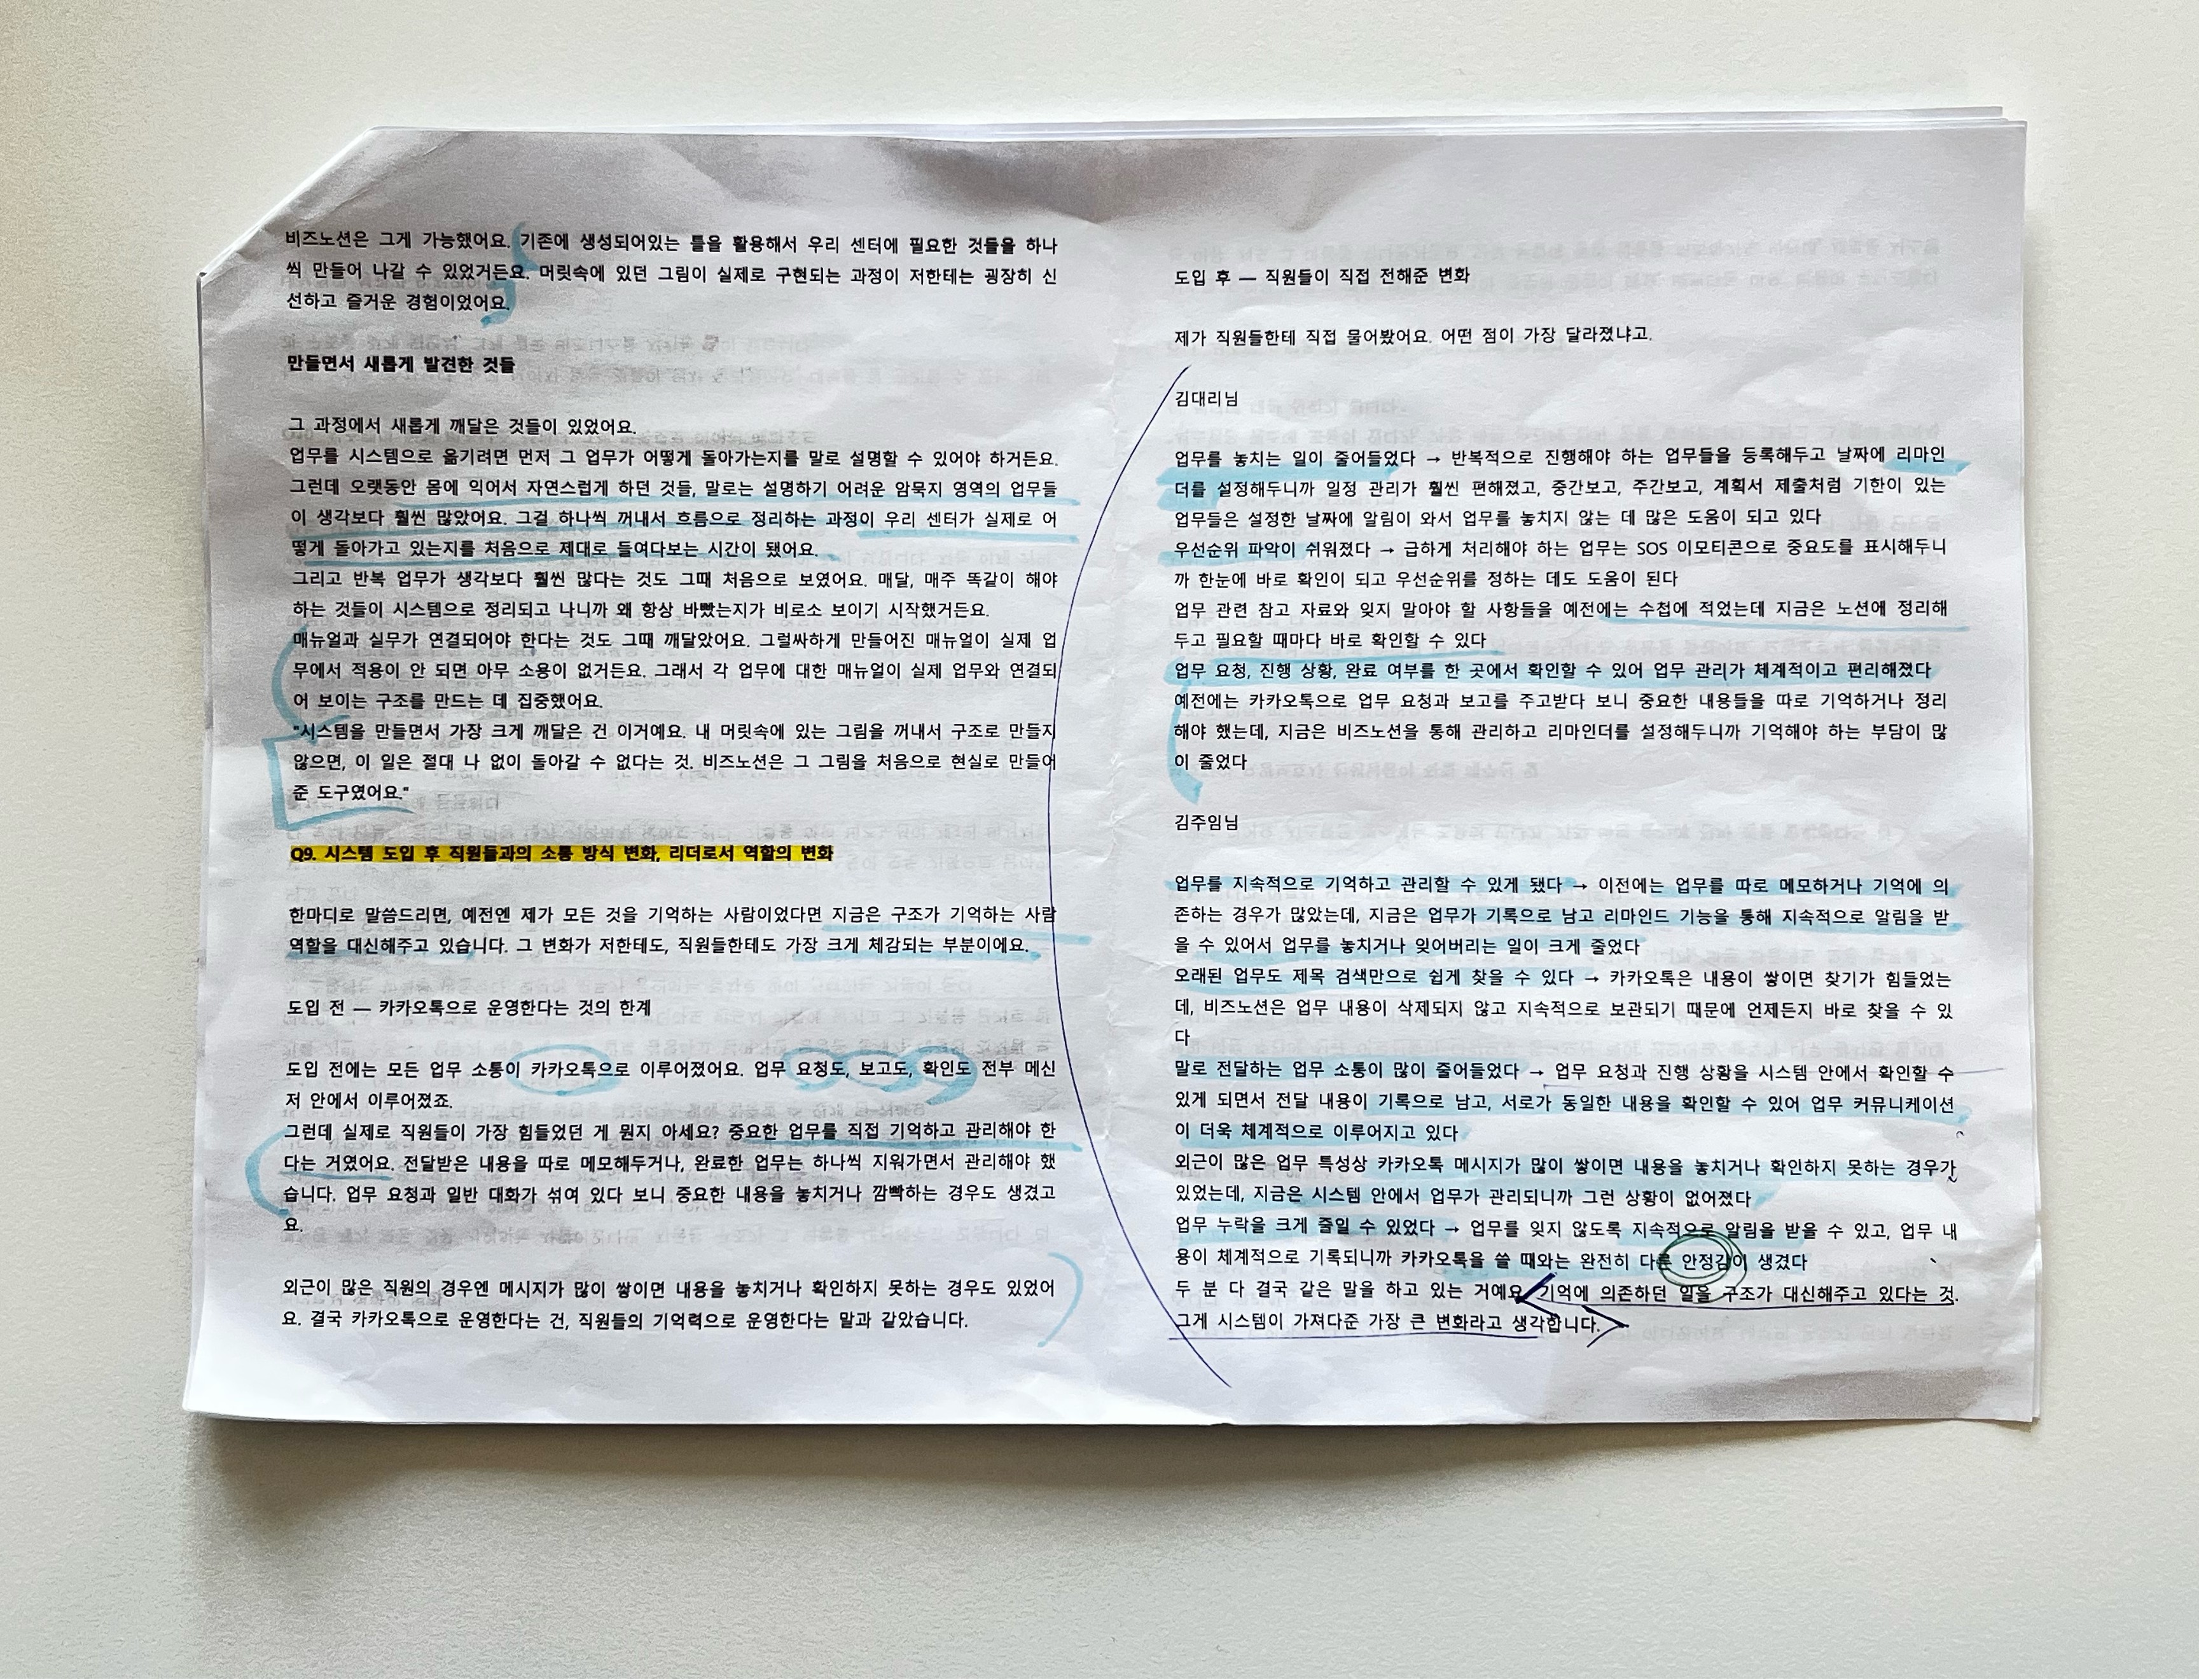 비즈노션은 그게 가능했어요. 기존에 생성되어있는 틀을 활용해서 우리 센터에 필요한 것들을 하나
씩 만들어 나갈 수 있었거든요. 머릿속에 있던 그림이 실제로 구현되는 과정이 저한테는 굉장히 신
선하고 즐거운 경험이었어요.
만들면서 새롭게 발견한 것들
그 과정에서 새롭게 깨달은 것들이 있었어요.
업무를 시스템으로 옮기려면 먼저 그 업무가 어떻게 돌아가는지를 말로 설명할 수 있어야 하거든요.
그런데 오랫동안 몸에 익어서 자연스럽게 하던 것들, 말로는 설명하기 어려운 암묵지 영역의 업무들
이 생각보다 훨씬 많았어요. 그걸 하나씩 꺼내서 흐름으로 정리하는 과정이 우리 센터가 실제로 어
떻게 돌아가고 있는지를 처음으로 제대로 들여다보는 시간이 됐어요.
그리고 반복 업무가 생각보다 훨씬 많다는 것도 그때 처음으로 보였어요. 매달, 매주 똑같이 해야
하는 것들이 시스템으로 정리되고 나니까 왜 항상 바빴는지가 비로소 보이기 시작했거든요.
매뉴얼과 실무가 연결되어야 한다는 것도 그때 깨달았어요. 그럴싸하게 만들어진 매뉴얼이 실제 업
무에서 적용이 안 되면 아무 소용이 없거든요. 그래서 각 업무에 대한 매뉴얼이 실제 업무와 연결되
어 보이는 구조를 만드는 데 집중했어요.
"시스템을 만들면서 가장 크게 깨달은 건 이거예요. 내 머릿속에 있는 그림을 꺼내서 구조로 만들지
않으면, 이 일은 절대 나 없이 돌아갈 수 없다는 것. 비즈노션은 그 그림을 처음으로 현실로 만들어
준 도구였어요."
Q9. 시스템 도입 후 직원들과의 소통 방식 변화, 리더로서 역할의 변화
한마디로 말씀드리면, 예전엔 제가 모든 것을 기억하는 사람이었다면 지금은 구조가 기억하는 사람
역할을 대신해주고 있습니다. 그 변화가 저한테도, 직원들한테도 가장 크게 체감되는 부분이에요.
도입 전 — 카카오톡으로 운영한다는 것의 한계
도입 전에는 모든 업무 소통이 카카오톡으로 이루어졌어요. 업무 요청도, 보고도, 확인도 전부 메신
저 안에서 이루어졌죠.
그런데 실제로 직원들이 가장 힘들었던 게 뭔지 아세요? 중요한 업무를 직접 기억하고 관리해야 한
다는 거였어요. 전달받은 내용을 따로 메모해두거나, 완료한 업무는 하나씩 지워가면서 관리해야 했
습니다. 업무 요청과 일반 대화가 섞여 있다 보니 중요한 내용을 놓치거나 깜빡하는 경우도 생겼고
요.
외근이 많은 직원의 경우엔 메시지가 많이 쌓이면 내용을 놓치거나 확인하지 못하는 경우도 있었어
요. 결국 카카오톡으로 운영한다는 건, 직원들의 기억력으로 운영한다는 말과 같았습니다.
도입 후 — 직원들이 직접 전해준 변화
제가 직원들한테 직접 물어봤어요. 어떤 점이 가장 달라졌냐고.
김대리님
업무를 놓치는 일이 줄어들었다 → 반복적으로 진행해야 하는 업무들을 등록해두고 날짜에 리마인
더를 설정해두니까 일정 관리가 훨씬 편해졌고, 중간보고, 주간보고, 계획서 제출처럼 기한이 있는
업무들은 설정한 날짜에 알림이 와서 업무를 놓치지 않는 데 많은 도움이 되고 있다
우선순위 파악이 쉬워졌다 → 급하게 처리해야 하는 업무는 SOS 이모티콘으로 중요도를 표시해두니
까 한눈에 바로 확인이 되고 우선순위를 정하는 데도 도움이 된다
업무 관련 참고 자료와 잊지 말아야 할 사항들을 예전에는 수첩에 적었는데 지금은 노션에 정리해
두고 필요할 때마다 바로 확인할 수 있다
업무 요청, 진행 상황, 완료 여부를 한 곳에서 확인할 수 있어 업무 관리가 체계적이고 편리해졌다
예전에는 카카오톡으로 업무 요청과 보고를 주고받다 보니 중요한 내용들을 따로 기억하거나 정리
해야 했는데, 지금은 비즈노션을 통해 관리하고 리마인더를 설정해두니까 기억해야 하는 부담이 많
이 줄었다
김주임님
업무를 지속적으로 기억하고 관리할 수 있게 됐다 → 이전에는 업무를 따로 메모하거나 기억에 의
존하는 경우가 많았는데, 지금은 업무가 기록으로 남고 리마인드 기능을 통해 지속적으로 알림을 받
을 수 있어서 업무를 놓치거나 잊어버리는 일이 크게 줄었다
오래된 업무도 제목 검색만으로 쉽게 찾을 수 있다 → 카카오톡은 내용이 쌓이면 찾기가 힘들었는
데, 비즈노션은 업무 내용이 삭제되지 않고 지속적으로 보관되기 때문에 언제든지 바로 찾을 수 있
다
말로 전달하는 업무 소통이 많이 줄어들었다 → 업무 요청과 진행 상황을 시스템 안에서 확인할 수
있게 되면서 전달 내용이 기록으로 남고, 서로가 동일한 내용을 확인할 수 있어 업무 커뮤니케이션
이 더욱 체계적으로 이루어지고 있다
외근이 많은 업무 특성상 카카오톡 메시지가 많이 쌓이면 내용을 놓치거나 확인하지 못하는 경우가
있었는데, 지금은 시스템 안에서 업무가 관리되니까 그런 상황이 없어졌다
업무 누락을 크게 줄일 수 있었다 → 업무를 잊지 않도록 지속적으로 알림을 받을 수 있고, 업무 내
용이 체계적으로 기록되니까 카카오톡을 쓸 때와는 완전히 다른 안정감이 생겼다
두 분 다 결국 같은 말을 하고 있는 거예요. 기억에 의존하던 일을 구조가 대신해주고 있다는 것.
그게 시스템이 가져다준 가장 큰 변화라고 생각합니다.